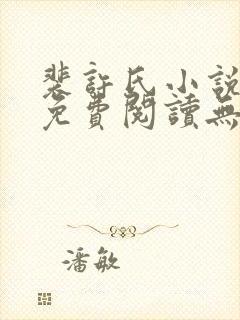 裴許氏小說
免費閱讀無
潘敏